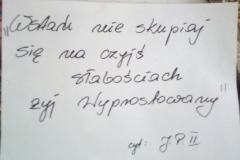 „Wstań nie skupiaj
się na czyjś
słabościach
żyj Wyprostowany"
cyt: J.P. II